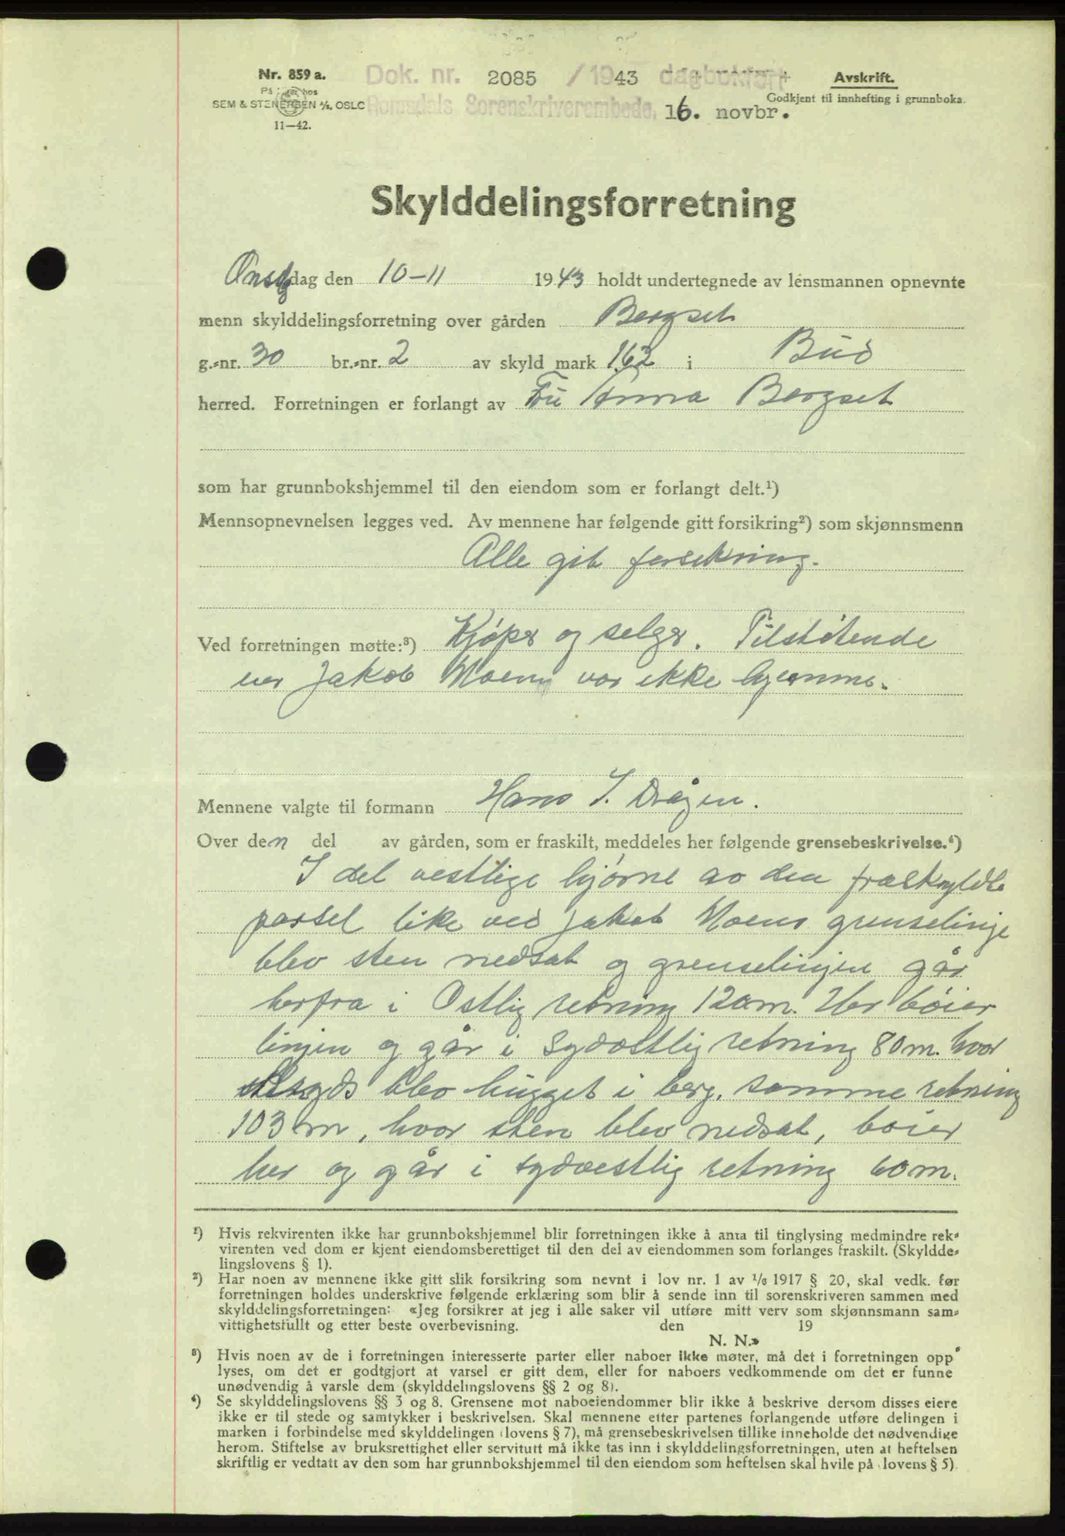 Nr. 859 a.
SEM & STENERSEN A/S, OSLO
11—42.
Dok. nr. 2085 / 1943 dagbokført
Romsdals Sorenskriverembede, 16. novbr.
Avskrift.
Godkjent til innhefting i grunnboka.
Skylddelingsforretning
Onsdag den 10-11 1943 holdt undertegnede av lensmannen opnevnte
menn skylddelingsforretning over gården Bergset
g.-nr. 30 br.-nr. 2 av skyld mark 1,62 i Bud
herred. Forretningen er forlangt av Fru Anna Bergset
som har grunnbokshjemmel til den eiendom som er forlangt delt.¹)
Mennsopnevnelsen legges ved. Av mennene har følgende gitt forsikring²) som skjønnsmenn
Alle git forsikring.
Ved forretningen møtte:³) Kjøper og selger. Tilstøtende
Jakob Moen var ikke hjemme.
Mennene valgte til formann Hans I. Drågen.
Over den del av gården, som er fraskilt, meddeles her følgende grensebeskrivelse.⁴)
I det vestlige hjørne av den fraskyldte
parsel like ved Jakob Moens grenselinje
blev sten nedsat og grenselinjen går
herfra i Østlig retning 120m. Her bøier
linjen og går i sydøstlig retning 80m. hvor
kryds blev hugget i berg, samme retning
103 m, hvor sten blev nedsat, bøier
her og går i sydvestlig retning 60m.
¹) Hvis rekvirenten ikke har grunnbokshjemmel blir forretningen ikke å anta til tinglysing medmindre rek-
virenten ved dom er kjent eiendomsberettiget til den del av eiendommen som forlanges fraskilt. (Skyldde-
lingslovens § 1).
²) Har noen av mennene ikke gitt slik forsikring som nevnt i lov nr. 1 av 1/6 1917 § 20, skal vedk. før
forretningen holdes underskrive følgende erklæring som blir å sende inn til sorenskriveren sammen med
skylddelingsforretningen: «Jeg forsikrer at jeg i alle saker vil utføre mitt verv som skjønnsmann sam-
vittighetsfullt og etter beste overbevisning. den 19
N. N.»
³) Hvis noen av de i forretningen interesserte parter eller naboer ikke møter, må det i forretningen opp
lyses, om det er godtgjort at varsel er gitt dem, eller for naboers vedkommende om det er funne
unødvendig å varsle dem (skylddelingslovens §§ 2 og 8).
⁴) Se skylddelingslovens §§ 3 og 8. Grensene mot naboeiendommer blir ikke å beskrive dersom disses eiere
ikke er til stede og samtykker i beskrivelsen. Skal mennene etter partenes forlangende utføre delingen i
marken i forbindelse med skylddelingen (lovens § 7), må grensebeskrivelsen tillike inneholde det nødvendige
herom. Stiftelse av bruksrettighet eller servitutt må ikke tas inn i skylddelingsforretningen, uten at heftelsen
skriftlig er vedtatt av den som har grunnbokshjemmel til den eiendom som heftelsen skal hvile på (lovens § 5)